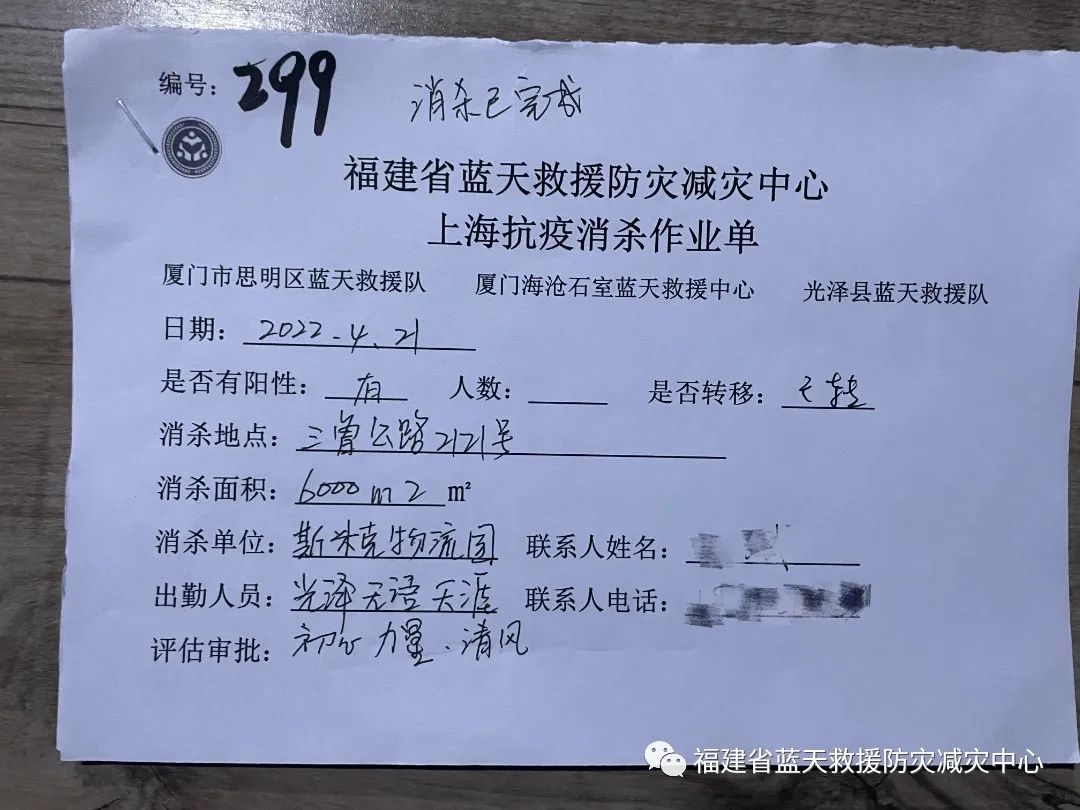 编号：299
消杀已完成
福建省蓝天救援防灾减灾中心
上海抗疫消杀作业单
厦门市思明区蓝天救援队 厦门海沧石室蓝天救援中心 光泽县蓝天救援队
日期：2022.4.21
是否有阳性：有 人数： 是否转移：已转
消杀地点：三鲁公路2121号
消杀面积：6000m2 m²
消杀单位：斯米克物流园 联系人姓名：
出勤人员：光泽 无语 天涯 联系人电话：
评估审批：初心 力量、清风
福建省蓝天救援防灾减灾中心